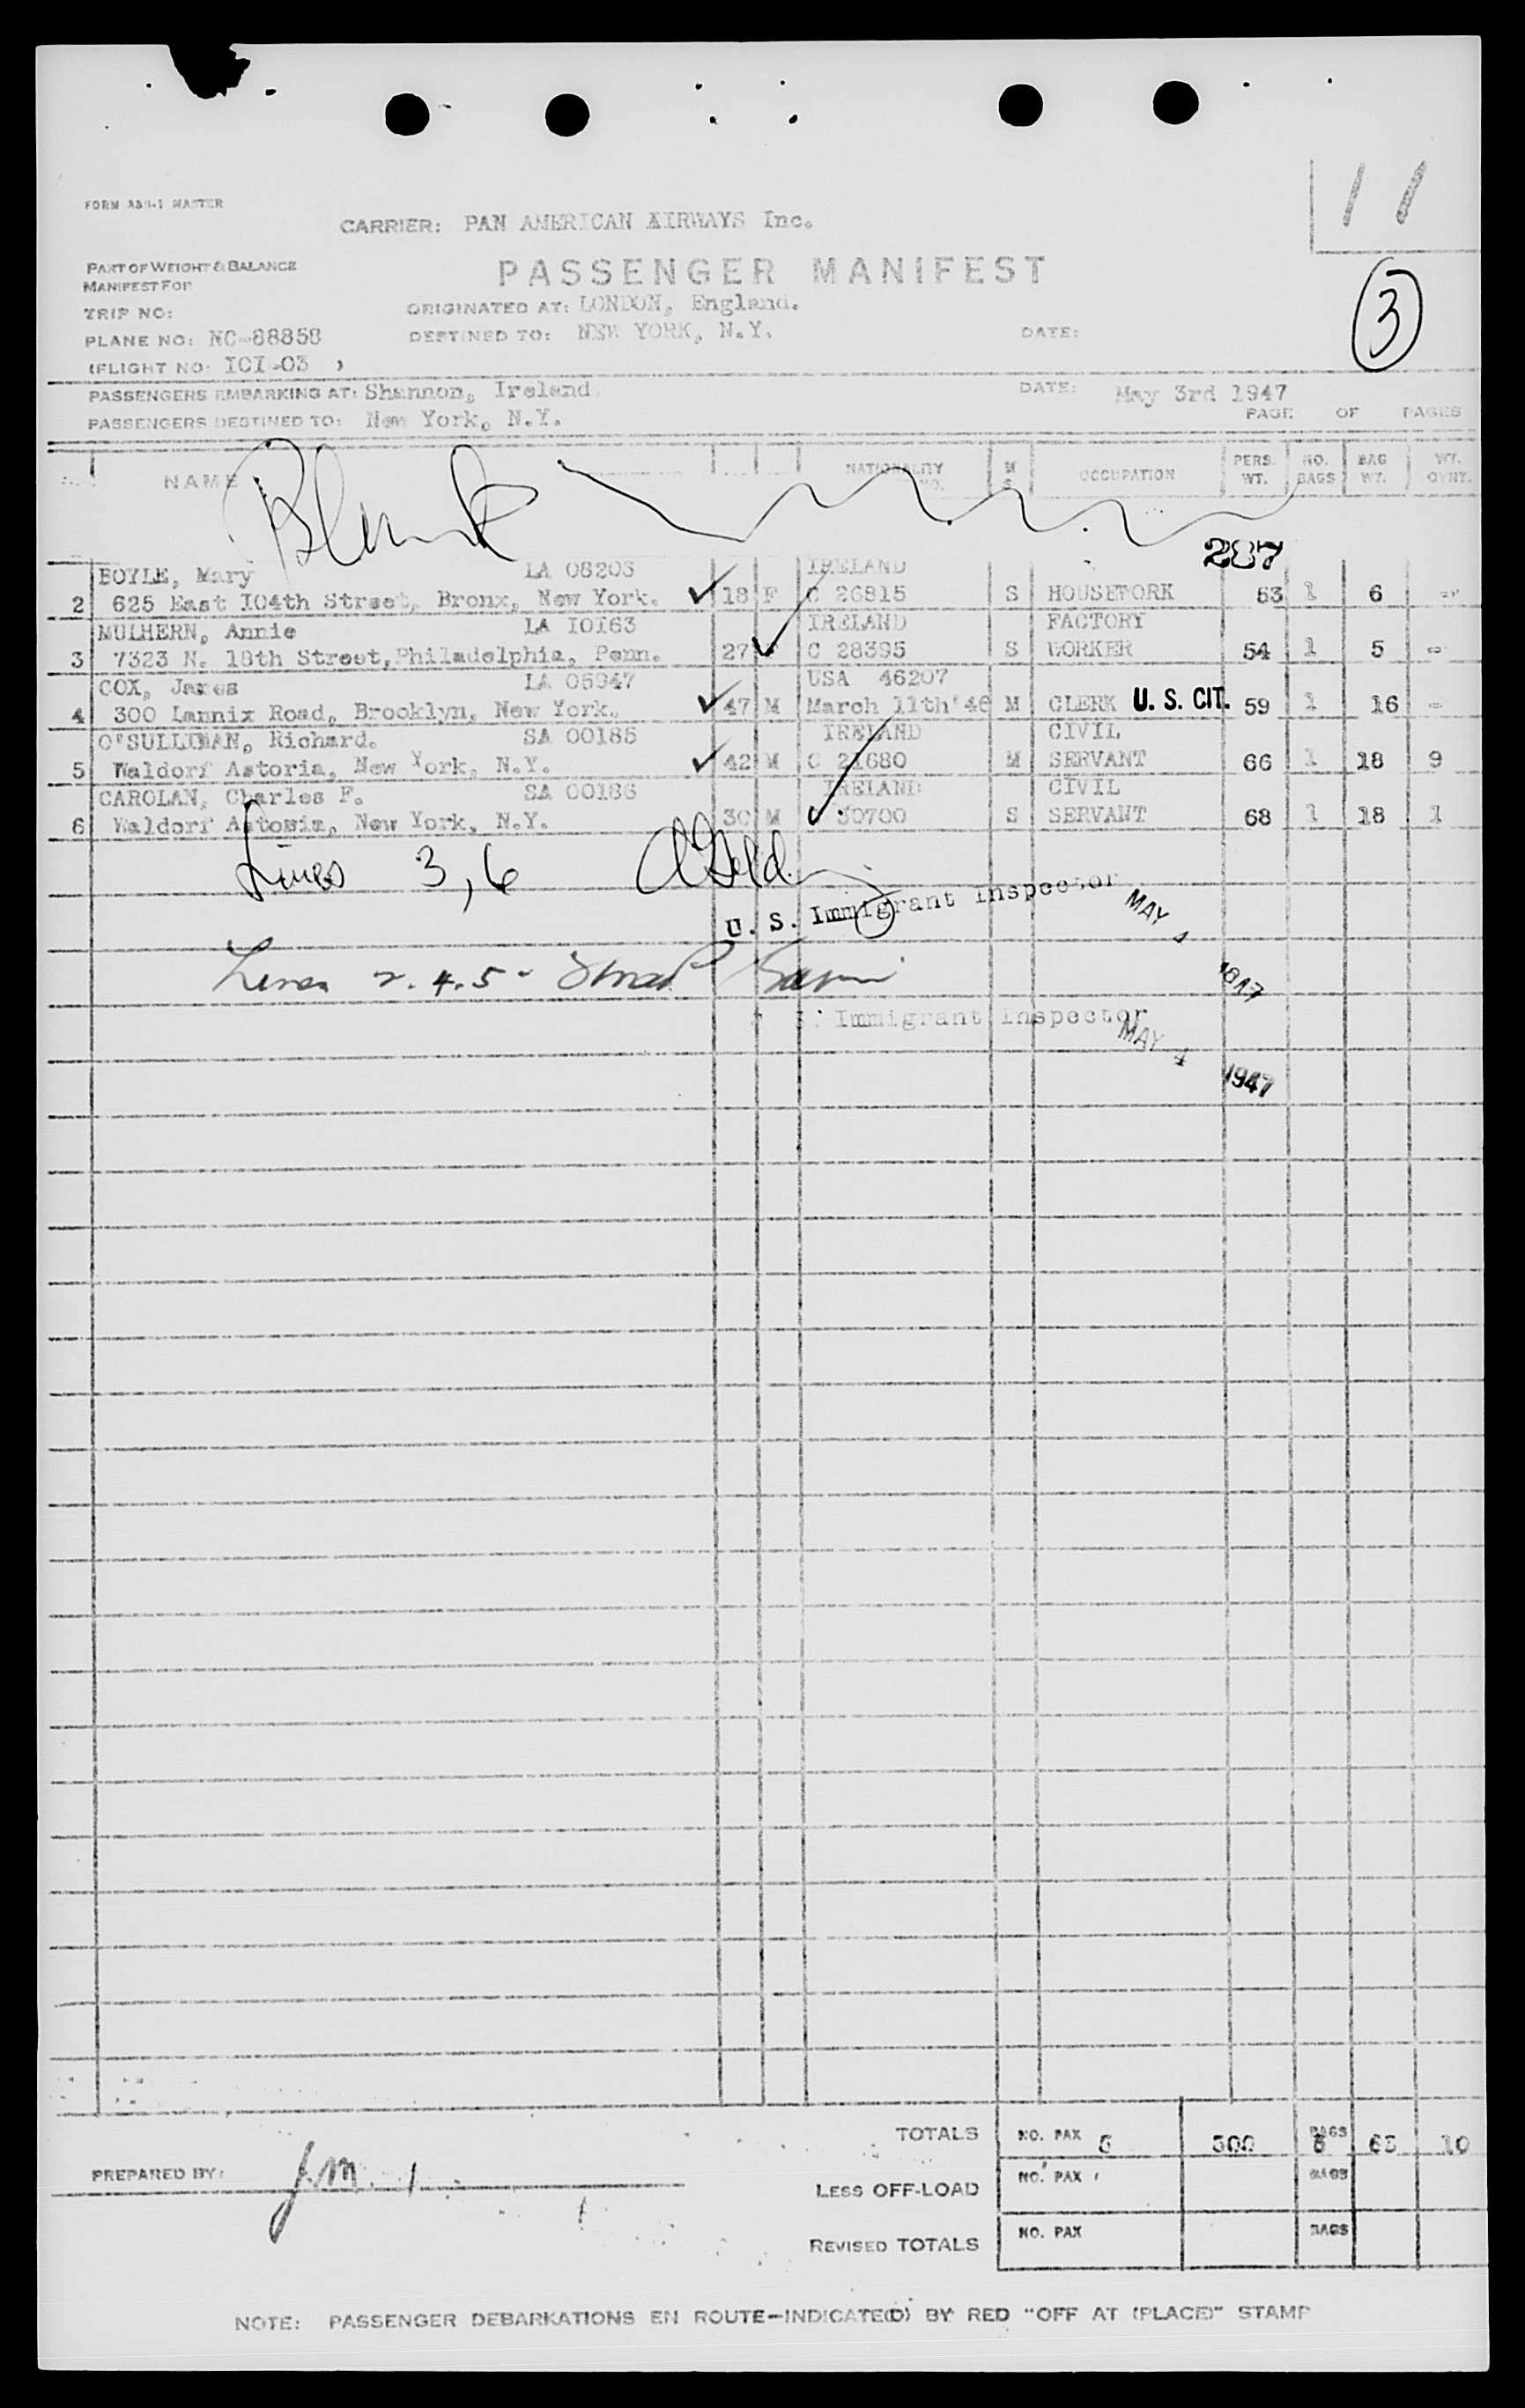 11
FORM ASH-1 MASTER
CARRIER: PAN AMERICAN AIRWAYS Inc.
PART OF WEIGHT & BALANCE
MANIFEST FOR
PASSENGER MANIFEST
3
TRIP NO:
ORIGINATED AT: LONDON, England.
PLANE NO: NC-88858
DESTINED TO: NEW YORK, N.Y.
DATE:
(FLIGHT NO. ICI-03 )
PASSENGERS EMBARKING AT: Shannon, Ireland.
DATE: May 3rd 1947
PASSENGERS DESTINED TO: New York, N.Y.
PAGE OF PAGES
NAME NATIONALITY NO. M S OCCUPATION PERS. WT. NO. BAGS BAG WT. WT. OVNT.
Blank
207
BOYLE, Mary LA 08203 IRELAND
2 625 East I04th Street, Bronx, New York. 18 F C 26815 S HOUSEWORK 53 1 6 -
MULHERN, Annie LA I0I63 IRELAND FACTORY
3 7323 N. 18th Street, Philadelphia, Penn. 27 C 28395 S WORKER 54 1 5 -
COX, James LA 05947 USA 46207
4 300 Lennix Road, Brooklyn, New York. 47 M March 11th'46 M CLERK U. S. CIT. 59 1 16 -
O'SULLIVAN, Richard. SA 00185 IRELAND CIVIL
5 Waldorf Astoria, New York, N.Y. 42 M C 21680 M SERVANT 66 1 18 9
CAROLAN, Charles F. SA 00186 IRELAND CIVIL
6 Waldorf Astoria, New York, N.Y. 30 M C 30700 S SERVANT 68 1 18 1
Lines 3, 6
U. S. Immigrant Inspector MAY 4 1947
Lines 2. 4. 5 -
Immigrant Inspector
MAY 4 1947
TOTALS NO. PAX 300 BAGS 63 10
PREPARED BY: J.M.
LESS OFF-LOAD NO. PAX BAGS
REVISED TOTALS NO. PAX BAGS
NOTE: PASSENGER DEBARKATIONS EN ROUTE-INDICATE(D) BY RED "OFF AT (PLACE)" STAMP